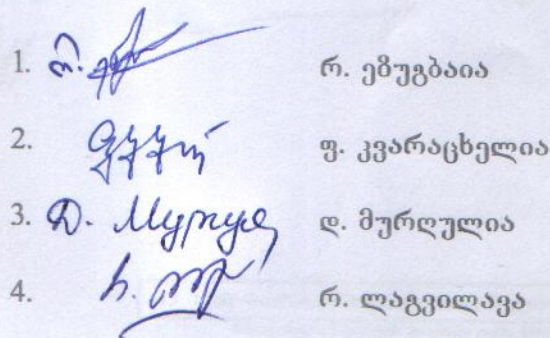 1. რ. ეზუგბაია
2. ფ. კვარაცხელია
3. Д. Мургул დ. მურღულია
4. რ. ლაგვილავა